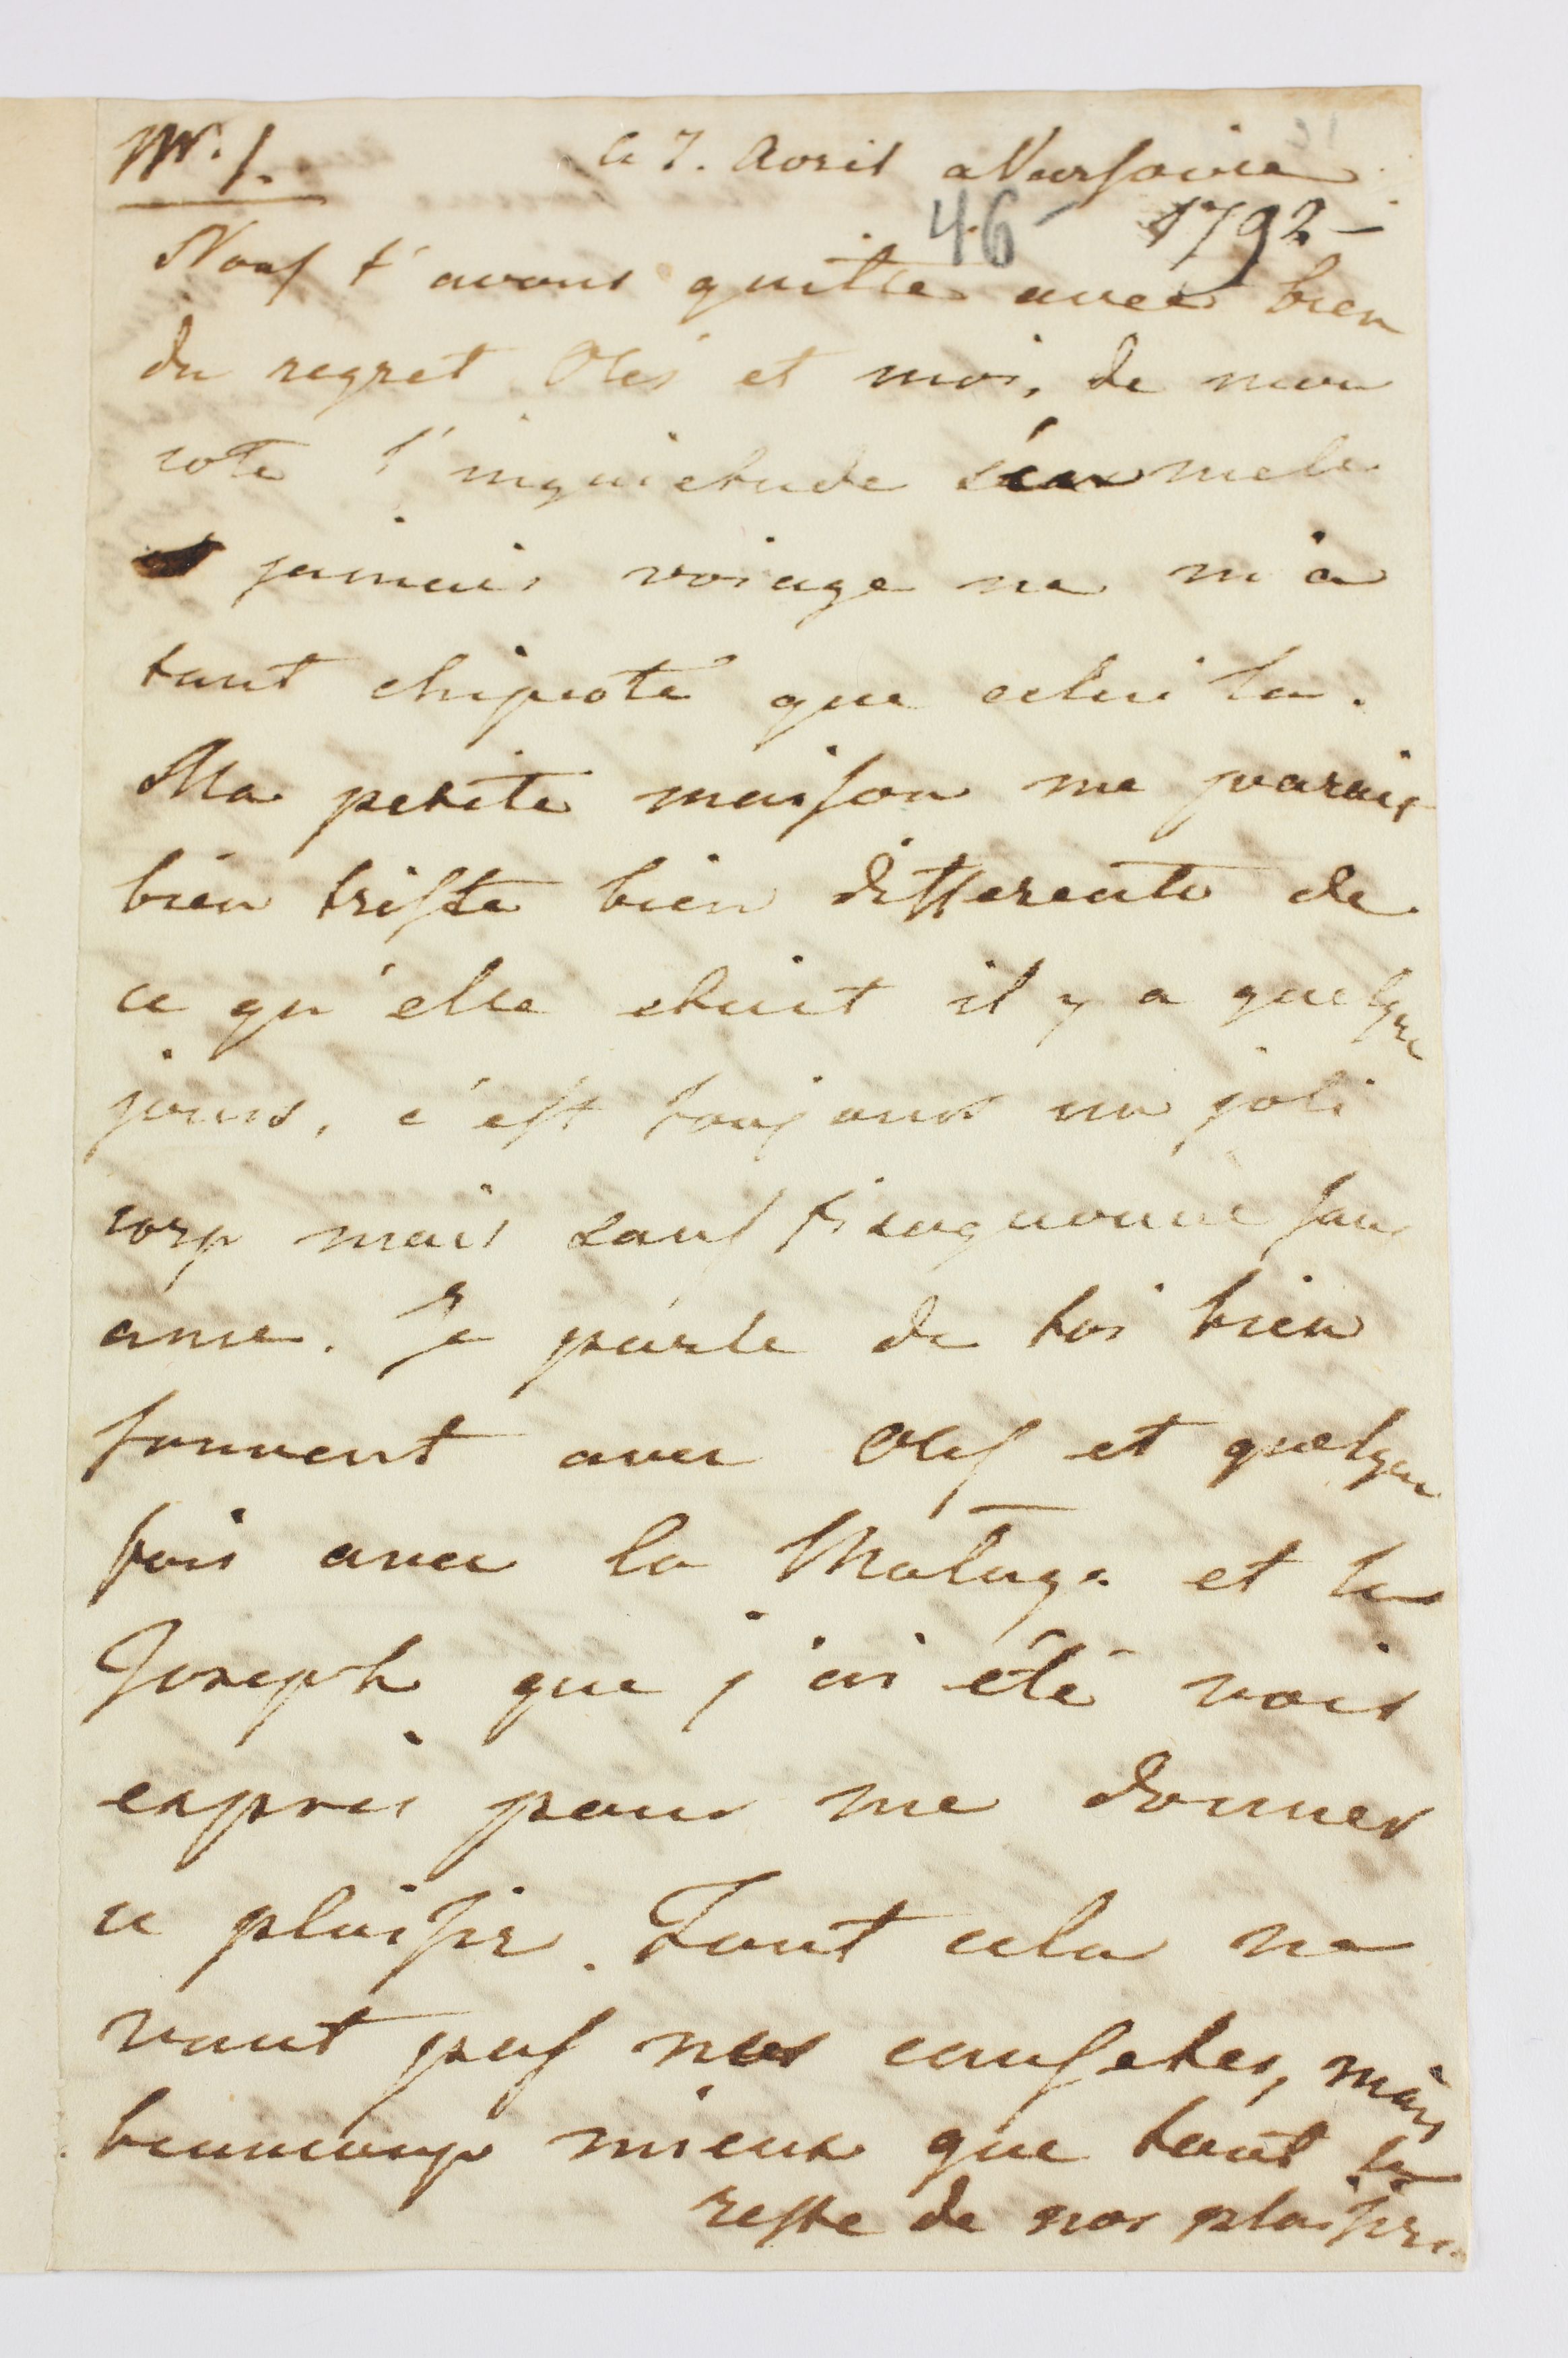 Nr. 1. ce 7. Avril a Varsovie
46 1792 —
Nous t'avons quitté avec bien
du regret Oles et moi, de mon
coté l'inquietude s'en mele
jamais voiage ne m'a
tant chipoté que celui la.
Ma petite maison me parait
bien triste bien differente de
ce qu'elle etait il y a quelque
jours, c'est toujours un joli
corp mais sans
ame. Je parle de toi bien
souvent avec Oles et quelque
fois avec la Malaga et la
Joseph que j'ai été voir
exprès pour me donner
ce plaisir. Tout cela ne
vaut pas nos causetes, mais
beaucoup mieux que tout le
reste de nos plaisirs.